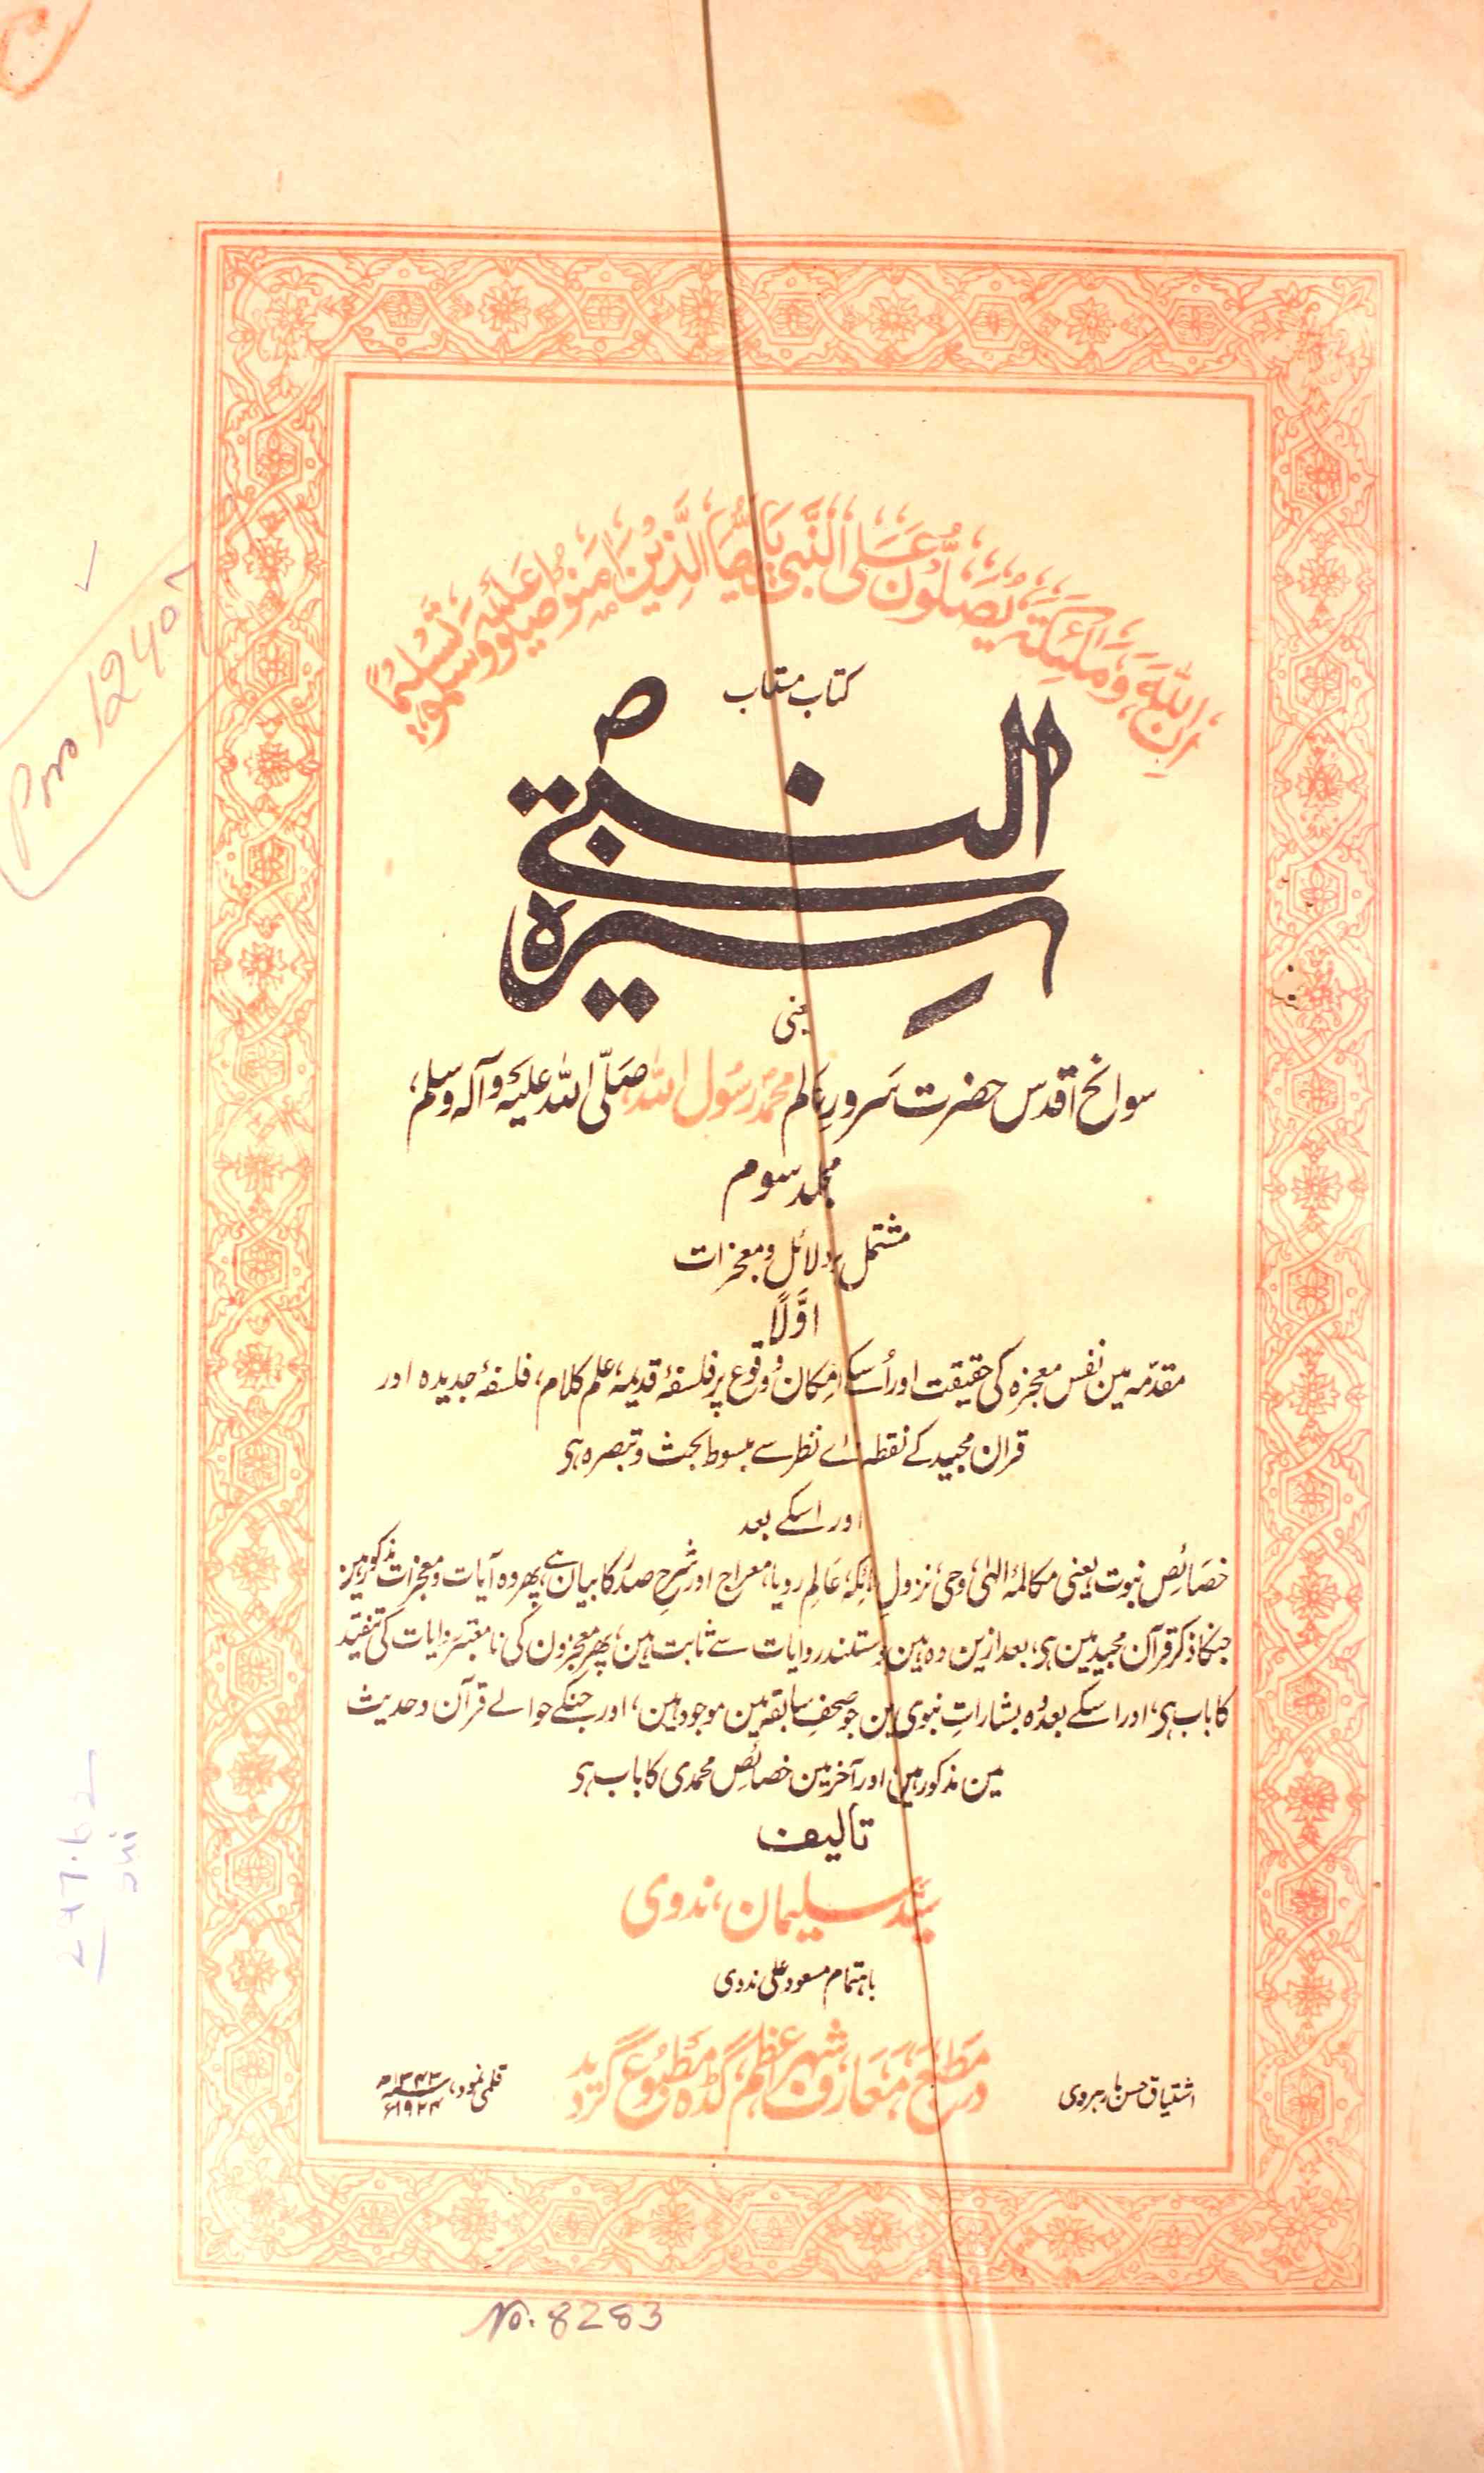 اِنَّ اللّٰهَ وَمَلٰئِكَتَهٗ يُصَلُّوْنَ عَلَى النَّبِيِّ يٰاَيُّهَا الَّذِيْنَ اٰمَنُوْا صَلُّوْا عَلَيْهِ وَسَلِّمُوْا تَسْلِيْمًا
کتاب مستطاب
سیرۃ النبی ؐ
یعنی
سوانح اقدس حضرت سرورِ عالم محمد رسول اللہ صلّی اللہ علیہ وآلہ وسلم،
مجلد سوم
مشتمل بر دلائل و معجزات
اوّلاً
مقدّمہ مین نفس معجزہ کی حقیقت اور اُسکے امکان و وقوع پر فلسفۂ قدیمہ، علم کلام، فلسفۂ جدیدہ اور
قران مجید کے نقطہ ہاے نظر سے مبسوط بحث و تبصرہ ہی
اور اسکے بعد
خصائصِ نبوت، یعنی مکالمۂ الٰہی، وحی، نزولِ ملائکہ، عالم رویا، معراج اور شرح صدر کا بیان ہے، پھر وہ آیات و معجزات مذکور ہین
جنکا ذکر قرآن مجید مین ہی، بعد ازین وہ ہین جو مستند روایات سے ثابت ہین، پھر معجزون کی نامعتبر روایات کی تنقید
کا باب ہی، اور اسکے بعد وہ بشاراتِ نبوی ہین جو صحفِ سابقہ مین موجود ہین، اور جنکے حوالے قرآن و حدیث
مین مذکور ہین اور آخر مین خصائصِ محمدی کا باب ہی
تالیف
سیّد سلیمان، ندوی
باہتمام مسعود علی ندوی
در مطبع معارف شہر اعظم گڈہ مطبوع گردید
اشتیاق حسن ہاربروی
قلمی نمود، ۱۳۴۳ھ
۱۹۲۴ء
No. 8283
297.62